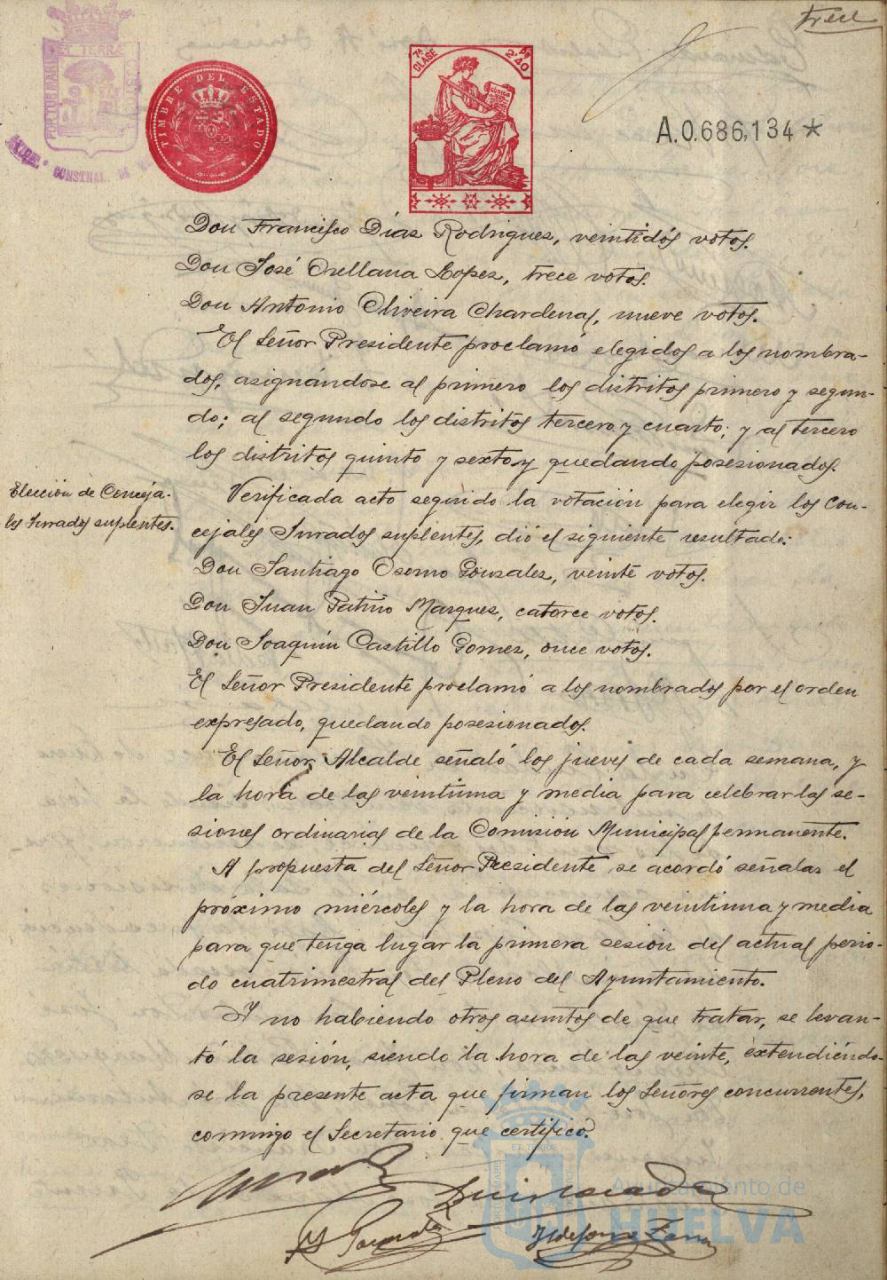 trece
PORTUS MARIS ET TERRAE CUSTODIA
CONSTNAL. DE
TIMBRE DEL ESTADO
7ª CLASE 2'40 Pts
A.0.686,134*
Don Francisco Díaz Rodriguez, veintidós votos.
Don José Orellana Lopez, trece votos.
Don Antonio Oliveira Chardenal, nueve votos.
El Señor Presidente proclamó elegidos a los nombra-
dos, asignándose al primero los distritos primero y segun-
do; al segundo los distritos tercero y cuarto; y al tercero
los distritos quinto y sexto y quedando posesionados.
Elección de Conceja-
les Jurados suplentes.
Verificada acto seguido la votación para elegir los Con-
cejales Jurados suplentes, dió el siguiente resultado:
Don Santiago Osorno Gonzalez, veinte votos.
Don Juan Patiño Marquez, catorce votos.
Don Joaquín Castillo Gomez, once votos.
El Señor Presidente proclamó a los nombrados por el orden
expresado, quedando posesionados.
El Señor Alcalde señaló los jueves de cada semana, y
la hora de las veintiuna y media para celebrar las se-
siones ordinarias de la Comisión Municipal permanente.
A propuesta del Señor Presidente se acordó señalar el
próximo miércoles y la hora de las veintiuna y media
para que tenga lugar la primera sesión del actual perio-
do cuatrimestral del Pleno del Ayuntamiento.
Y no habiendo otros asuntos de que tratar, se levan-
tó la sesión, siendo la hora de las veinte, extendiéndo-
se la presente acta que firman los Señores concurrentes,
conmigo el Secretario que certifico.
Ayuntamiento de
HUELVA